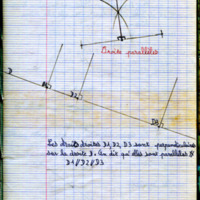 Droites parallèles
D
D1
D2
D3
Les droites D1, D2, D3 sont perpendiculaires
sur la droite D. On dit qu'elles sont parallèles
D1//D2//D3